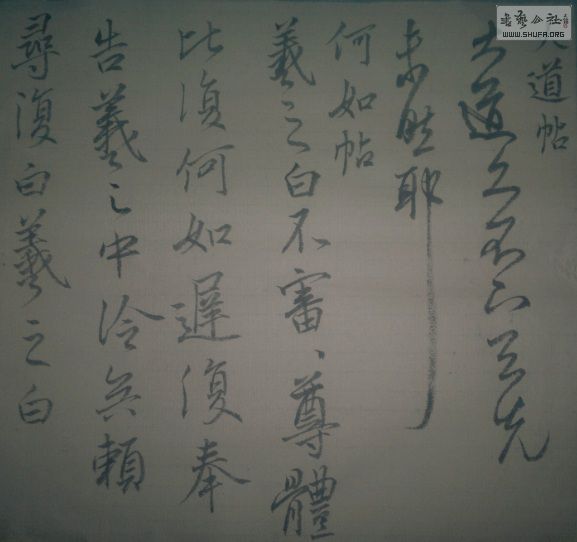 書藝公社
WWW.SHUFA.ORG
大道帖
大道久不下與先
未然耶
何如帖
羲之白不審、尊體
比復何如遲復奉
告羲之中冷無賴
尋復白羲之白